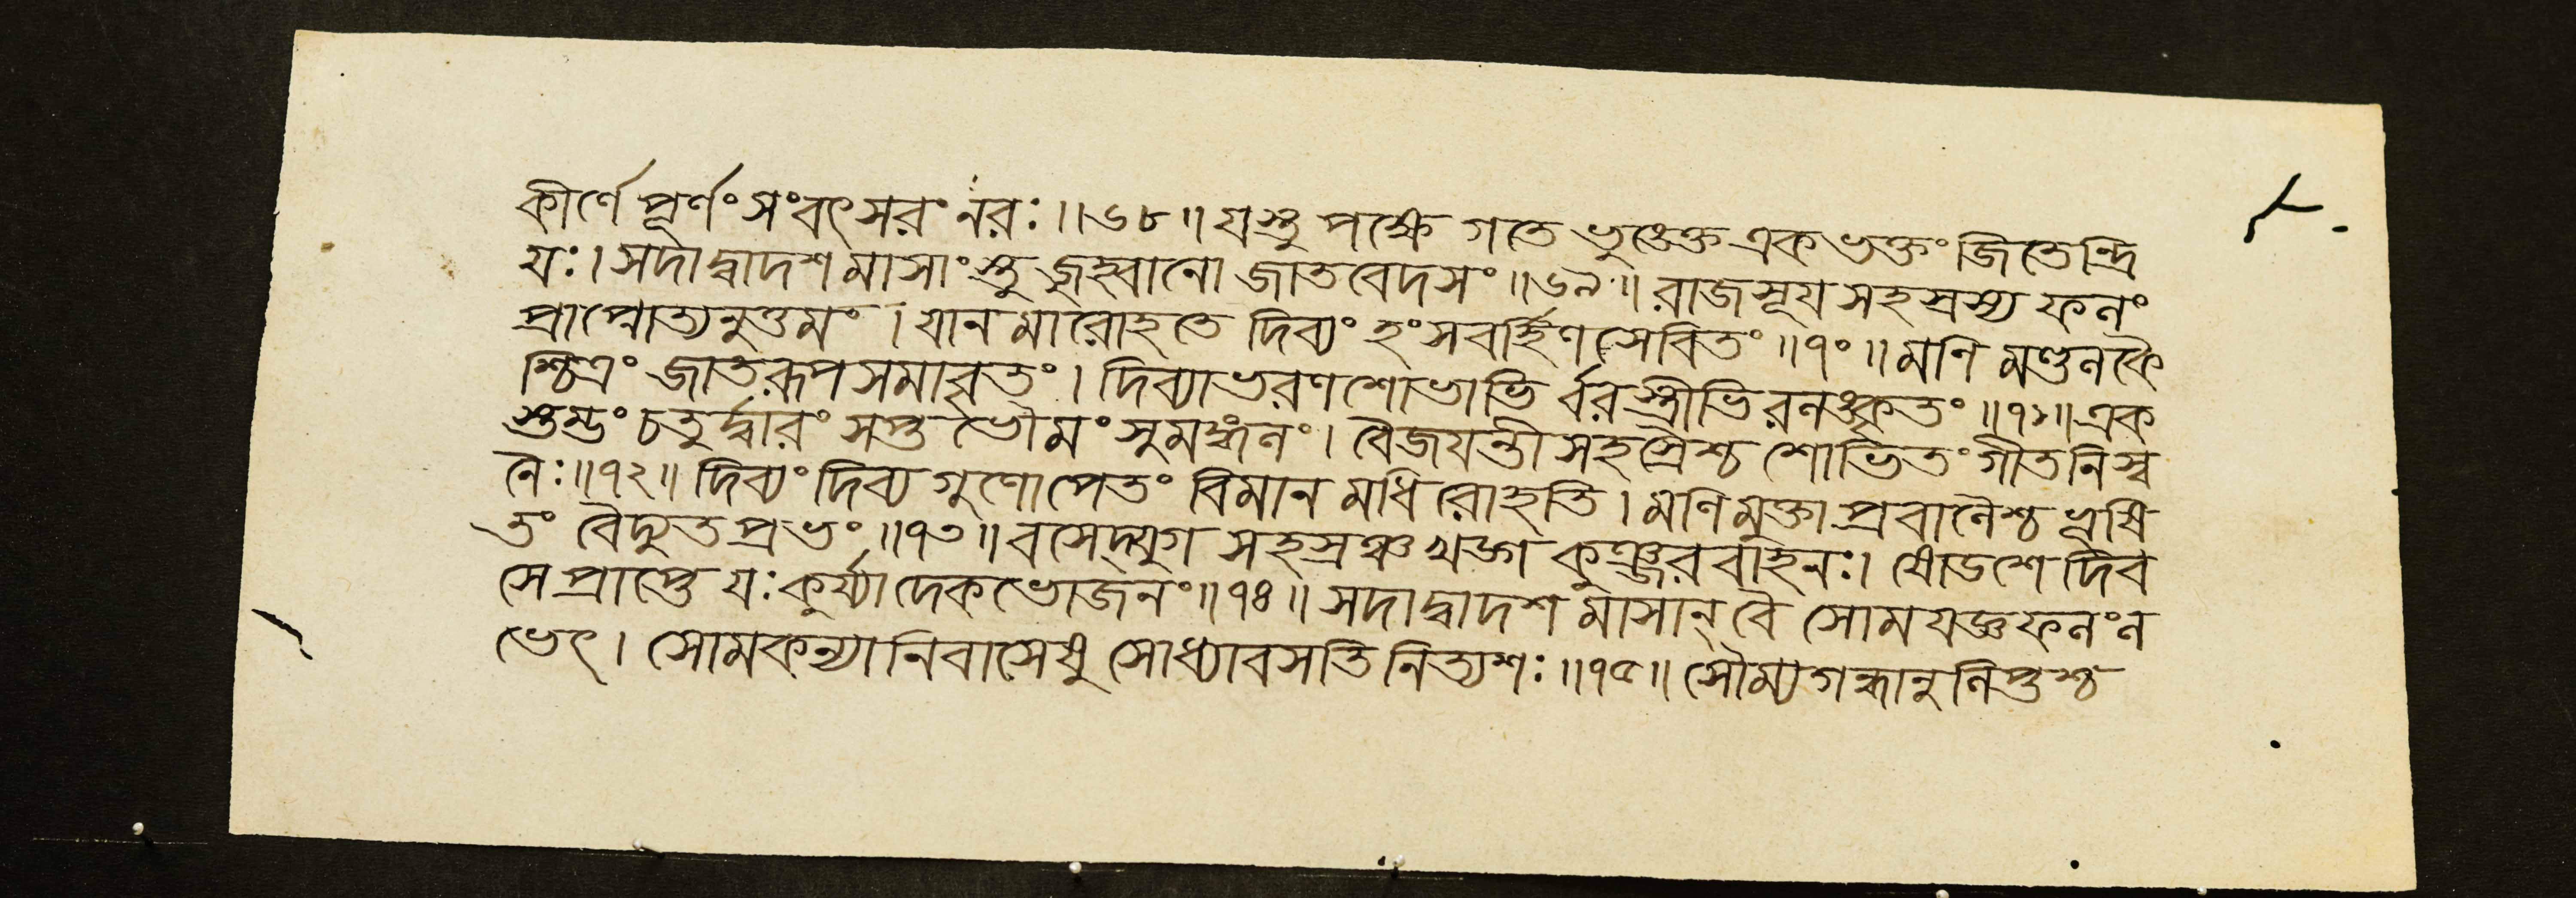 কীর্ণে পূর্ণং সংবৎসরং নরঃ ॥৬৮॥ যস্তু পক্ষে গতে ভুঙ্ক্তে একভক্তং জিতেন্দ্রি
যঃ । সদা দ্বাদশ মাসাংস্তু জুহ্বানো জাতবেদসং ॥৬৯॥ রাজসূয সহস্রস্য ফলং
প্রাপ্নোত্যনুত্তমং । যানমারোহতে দিব্যং হংসবর্হিণসেবিতং ॥৭০॥ মণি মণ্ডলকৈ
শ্চিত্রং জাতরূপসমাবৃতং । দিব্যাভরণশোভাভি র্বরস্ত্রীভিরলঙ্কৃতং ॥৭১॥ এক
স্তম্ভং চতুর্দ্বারং সপ্তভৌমং সুমঙ্গলং । বৈজযন্তীসহস্রৈশ্চ শোভিতং গীতনিস্ব
নৈঃ ॥৭২॥ দিব্যং দিব্যগুণোপেতং বিমানমধিরোহতি । মণিমুক্তাপ্রবালৈশ্চ ভূষি
তং বৈদ্যুতপ্রভং ॥৭৩॥ বসেদ্যুগসহস্রঞ্চ খড্গকুঞ্জরবাহনঃ । ষোডশে দিব
সে প্রাপ্তে যঃ কুর্য্যাদেকভোজনং ॥৭৪॥ সদা দ্বাদশ মাসান্ বৈ সোমযজ্ঞফলং ল
ভেৎ । সোমকন্যানিবাসেষু সোধ্যাবসতি নিত্যশঃ ॥৭৫॥ সৌম্যগন্ধানুলিপ্তশ্চ